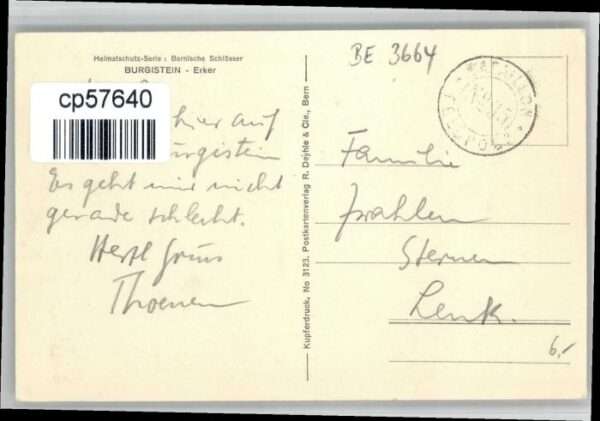 Heimatschutz-Serie: Bernische Schlösser
BURGISTEIN - Erker
cp57640
hier auf
Es geht mir nicht
gerade schlecht.
Herzl Gruss
Thoenen
Kupferdruck, No 3123. Postkartenverlag R. Deyhle & Cie., Bern
BE 3664
Familie
Zrahlen
Sternen
Lenk.
6.-